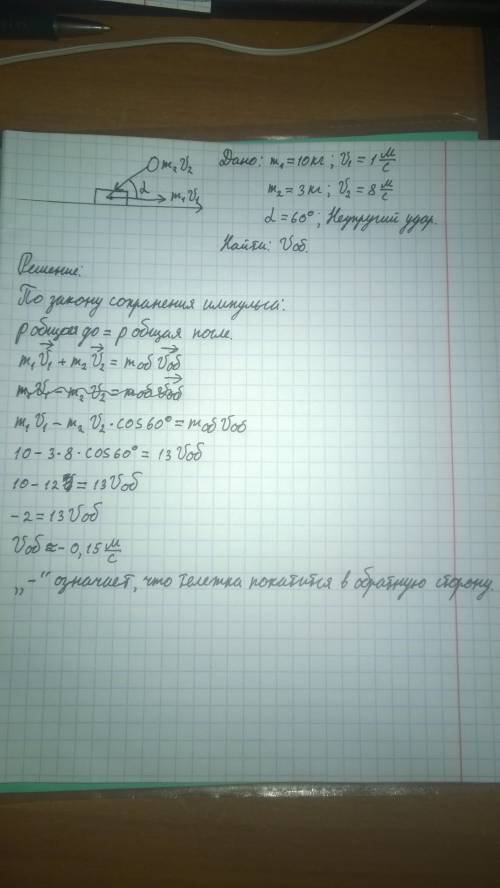 m₂V₂
α
m₁V₁
Дано: m₁ = 10 кг; V₁ = 1 м/с
m₂ = 3 кг; V₂ = 8 м/с
α = 60°; Неупругий удар.
Найти: Vоб.
Решение:
По закону сохранения импульса:
p общая до = p общая после.
m₁V⃗₁ + m₂V⃗₂ = mоб V⃗об
m₁V₁ - m₂V₂ = mоб V⃗об
m₁V₁ - m₂V₂ · cos60° = mоб Vоб
10 - 3 · 8 · cos60° = 13Vоб
10 - 12 = 13Vоб
-2 = 13Vоб
Vоб ≈ - 0,15 м/с
„-“ означает, что тележка покатится в обратную сторону.